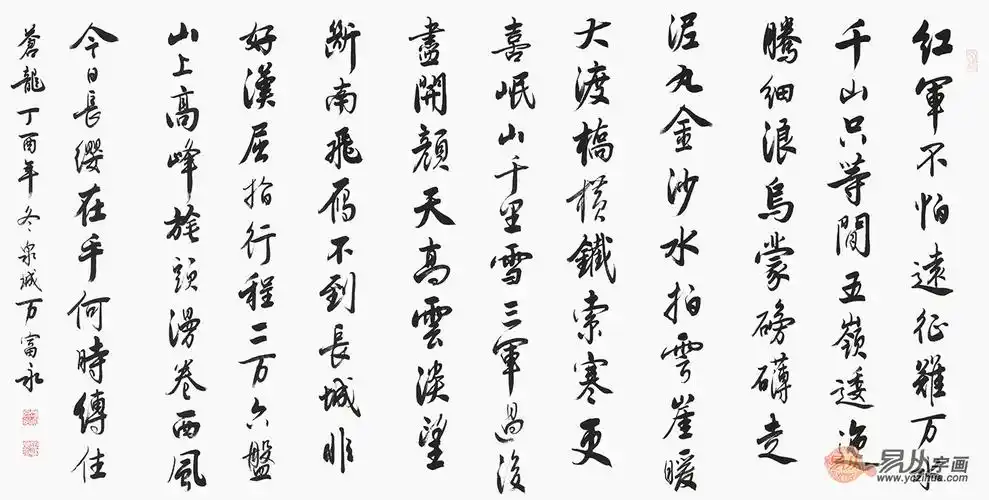 红軍不怕遠征難万水
千山只等閒五嶺逶迤
騰細浪烏蒙磅礴走
泥丸金沙水拍雲崖暖
大渡橋横鐵索寒更
喜岷山千里雪三軍過後
盡開顏天高雲淡望
斷南飛雁不到長城非
好漢屈指行程二万六盤
山上高峰旄頭漫卷西風
今日長纓在手何時縛住
蒼龍丁酉年冬泉城万富永
易从字画
www.yczihua.com